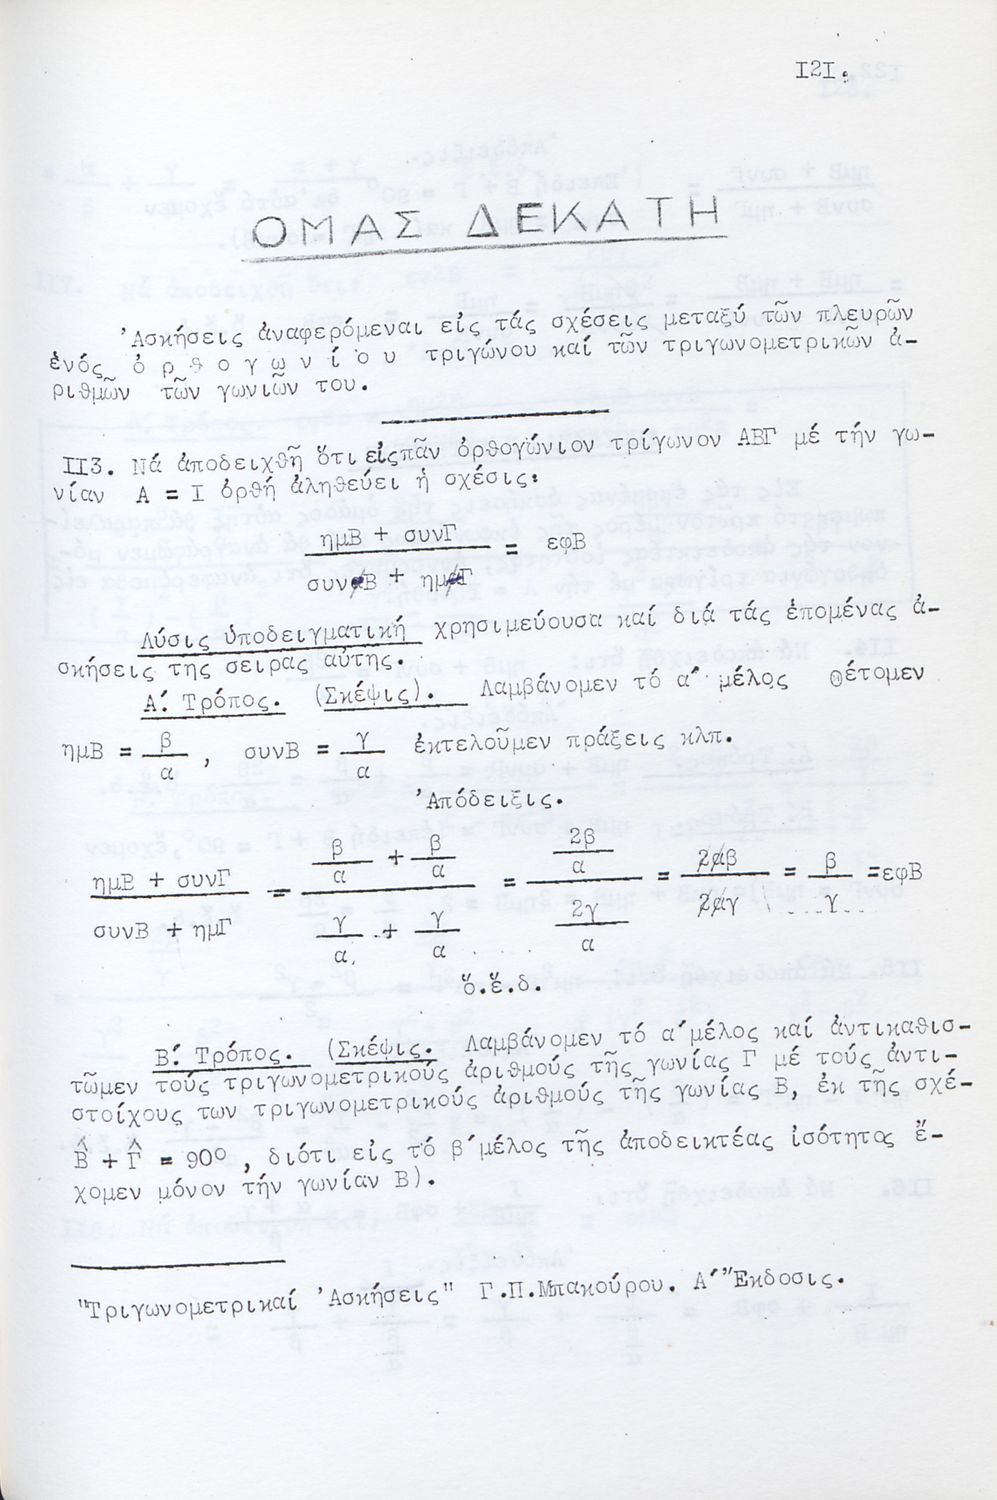 I2I.
ΟΜΑΣ ΔΕΚΑΤΗ
Ἀσκήσεις ἀναφερόμεναι εἰς τάς σχέσεις μεταξύ τῶν πλευρῶν
ἑνός ὀ ρ θ ο γ ω ν ί ο υ τριγώνου καί τῶν τριγωνομετρικῶν ἀ-
ριθμῶν τῶν γωνιῶν του.
II3. Νά ἀποδειχθῆ ὅτι εἰςπᾶν ὀρθογώνιον τρίγωνον ΑΒΓ μέ τήν γω-
νίαν Α = I ὀρθή ἀληθεύει ἡ σχέσις:
ημΒ + συνΓ
= εφΒ
συνΒ + ημΓ
Λύσις ὑποδειγματική χρησιμεύουσα καί διά τάς ἑπομένας ἀ-
σκήσεις της σειρας αὐτης.
Α΄. Τρόπος. (Σκέψις). Λαμβάνομεν τό α΄ μέλος θέτομεν
ημΒ = β/α , συνΒ = γ/α ἐκτελοῦμεν πράξεις κλπ.
Ἀπόδειξις.
β/α + β/α 2β/α
ημΒ + συνΓ = = = 2αβ = β =εφΒ
συνΒ + ημΓ γ/α + γ/α 2γ/α 2αγ γ
ὅ.ἔ.δ.
Β΄. Τρόπος. (Σκέψις. Λαμβάνομεν τό α΄μέλος καί ἀντικαθισ-
τῶμεν τούς τριγωνομετρικούς ἀριθμούς τῆς γωνίας Γ μέ τούς ἀντι-
στοίχους των τριγωνομετρικούς ἀριθμούς τῆς γωνίας Β, ἐκ τῆς σχέ-
B̂ + Γ̂ = 90º , διότι εἰς τό β΄μέλος τῆς ἀποδεικτέας ἰσότητος ἔ-
χομεν μόνον τήν γωνίαν Β).
"Τριγωνομετρικαί Ἀσκήσεις" Γ.Π.Μπακούρου. Α΄Ἔκδοσις.